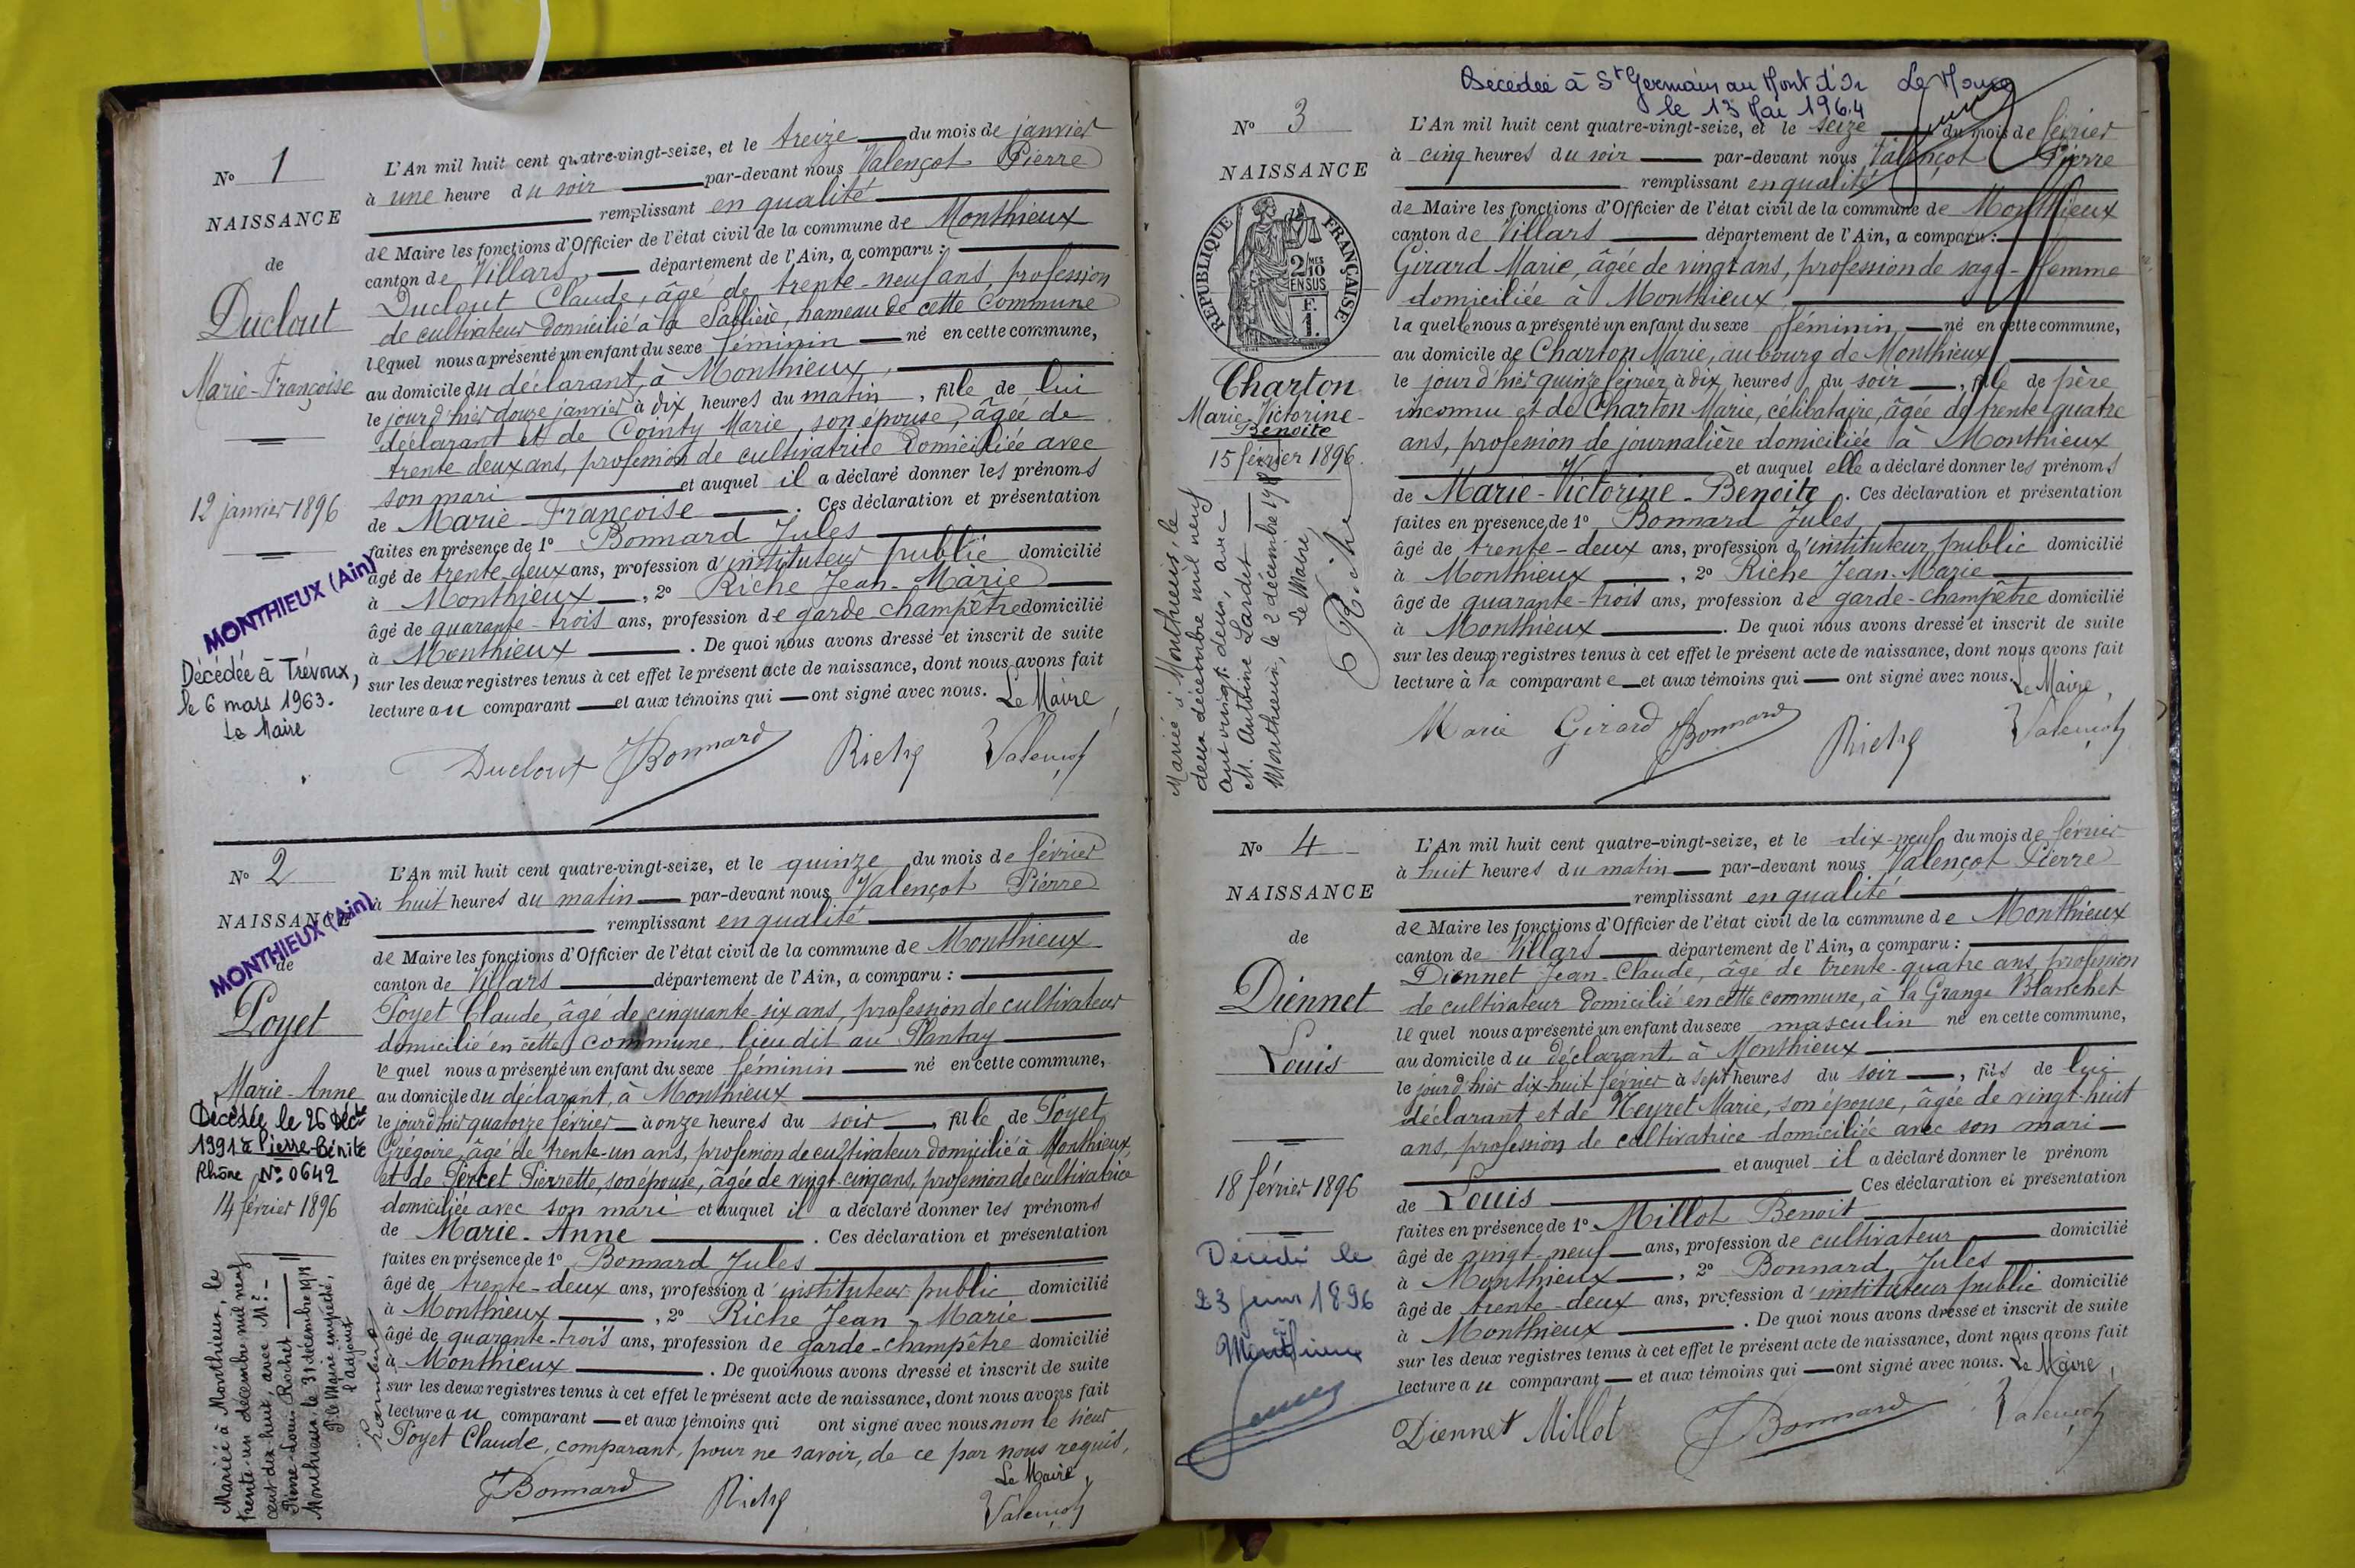 No 1
NAISSANCE
de
Duclout
Marie-Françoise
12 janvier 1896
MONTHIEUX (Ain)
Décédée à Trévoux,
le 6 mars 1963.
Le Maire
L'An mil huit cent quatre-vingt-seize, et le treize du mois de janvier
à une heure du soir par-devant nous Valençot Pierre
remplissant en qualité
de Maire les fonctions d'Officier de l'état civil de la commune de Monthieux
canton de Villars, département de l'Ain, a comparu :
Duclout Claude, âgé de trente-neuf ans, profession
de cultivateur domicilié à la Sablière, hameau de cette commune
lequel nous a présenté un enfant du sexe féminin né en cette commune,
au domicile du déclarant, à Monthieux,
le jour d'hier douze janvier à dix heures du matin, fille de lui
déclarant et de Cointy Marie, son épouse, âgée de
trente deux ans, profession de cultivatrice domiciliée avec
son mari et auquel il a déclaré donner les prénoms
de Marie-Françoise. Ces déclaration et présentation
faites en présence de 1° Bonnard Jules
âgé de trente-deux ans, profession d'instituteur public domicilié
à Monthieux, 2° Riche Jean-Marie
âgé de quarante-trois ans, profession de garde-champêtre domicilié
à Monthieux. De quoi nous avons dressé et inscrit de suite
sur les deux registres tenus à cet effet le présent acte de naissance, dont nous avons fait
lecture au comparant et aux témoins qui ont signé avec nous. Le Maire,
Duclout JBonnard Riche Valençot
No 2
NAISSANCE
MONTHIEUX (Ain)
de
Poyet
Marie-Anne
Décédée le 26 Décbre
1991 à Pierre-Bénite
Rhône No 0642
14 février 1896
Mariée à Monthieux, le
trente-un décembre mil neuf
cent dix-huit, avec Mr
Pierre-Louis Rochet
Monthieux, le 31 décembre 1918
P. le Maire empêché,
l'adjoint
L'An mil huit cent quatre-vingt-seize, et le quinze du mois de février
à huit heures du matin par-devant nous Valençot Pierre
remplissant en qualité
de Maire les fonctions d'Officier de l'état civil de la commune de Monthieux
canton de Villars département de l'Ain, a comparu :
Poyet Claude, âgé de cinquante-six ans, profession de cultivateur
domicilié en cette commune, lieu dit au Plantay
lequel nous a présenté un enfant du sexe féminin né en cette commune,
au domicile du déclarant, à Monthieux
le jour d'hier quatorze février à onze heures du soir, fille de Poyet
Grégoire, âgé de trente-un ans, profession de cultivateur domicilié à Monthieux,
et de Percet Pierrette, son épouse, âgée de vingt-cinq ans, profession de cultivatrice
domiciliée avec son mari et auquel il a déclaré donner les prénoms
de Marie-Anne. Ces déclaration et présentation
faites en présence de 1° Bonnard Jules
âgé de trente-deux ans, profession d'instituteur public domicilié
à Monthieux, 2° Riche Jean-Marie
âgé de quarante-trois ans, profession de garde-champêtre domicilié
à Monthieux. De quoi nous avons dressé et inscrit de suite
sur les deux registres tenus à cet effet le présent acte de naissance, dont nous avons fait
lecture au comparant et aux témoins qui ont signé avec nous non le sieur
Poyet Claude, comparant, pour ne savoir, de ce par nous requis,
Le Maire,
JBonnard Riche Valençot
Décédée à St Germain au Mont d'Or Le Maire
le 13 Mai 1964
No 3
NAISSANCE
RÉPUBLIQUE FRANÇAISE
2 MES
10
EN SUS
F.
1.
Charton
Marie-Victorine-
Benoite
15 février 1896.
Mariée à Monthieux, le
deux décembre mil neuf
cent vingt-deux, avec
M. Antoine Lardet
Monthieux, le 2 décembre 19
Le Maire,
Riche
L'An mil huit cent quatre-vingt-seize, et le seize du mois de février
à cinq heures du soir par-devant nous Valençot Pierre
remplissant en qualité
de Maire les fonctions d'Officier de l'état civil de la commune de Monthieux
canton de Villars département de l'Ain, a comparu :
Girard Marie, âgée de vingt ans, profession de sage-femme
domiciliée à Monthieux,
laquelle nous a présenté un enfant du sexe féminin né en cette commune,
au domicile de Charton Marie, au bourg de Monthieux
le jour d'hier quinze février à dix heures du soir, fille de père
inconnu et de Charton Marie, célibataire, âgée de trente-quatre
ans, profession de journalière domiciliée à Monthieux
et auquel elle a déclaré donner les prénoms
de Marie-Victorine-Benoite. Ces déclaration et présentation
faites en présence de 1° Bonnard Jules
âgé de trente-deux ans, profession d'instituteur public domicilié
à Monthieux, 2° Riche Jean-Marie
âgé de quarante-trois ans, profession de garde-champêtre domicilié
à Monthieux. De quoi nous avons dressé et inscrit de suite
sur les deux registres tenus à cet effet le présent acte de naissance, dont nous avons fait
lecture à la comparante et aux témoins qui ont signé avec nous. Le Maire,
Marie Girard JBonnard Riche Valençot
No 4
NAISSANCE
de
Diennet
Louis
18 février 1896
Décédé le
23 juin 1896
à
Monthieux
L'An mil huit cent quatre-vingt-seize, et le dix-neuf du mois de février
à huit heures du matin par-devant nous Valençot Pierre
remplissant en qualité
de Maire les fonctions d'Officier de l'état civil de la commune de Monthieux
canton de Villars département de l'Ain, a comparu :
Diennet Jean-Claude, âgé de trente-quatre ans, profession
de cultivateur domicilié en cette commune, à la Grange Blanchet
lequel nous a présenté un enfant du sexe masculin né en cette commune,
au domicile du déclarant à Monthieux
le jour d'hier dix-huit février à sept heures du soir, fils de lui
déclarant et de Neyret Marie, son épouse, âgée de vingt-huit
ans, profession de cultivatrice domiciliée avec son mari
et auquel il a déclaré donner le prénom
de Louis Ces déclaration et présentation
faites en présence de 1° Millot Benoit
âgé de vingt-neuf ans, profession de cultivateur domicilié
à Monthieux, 2° Bonnard Jules
âgé de trente-deux ans, profession d'instituteur public domicilié
à Monthieux. De quoi nous avons dressé et inscrit de suite
sur les deux registres tenus à cet effet le présent acte de naissance, dont nous avons fait
lecture au comparant et aux témoins qui ont signé avec nous. Le Maire,
Diennet Millot JBonnard Valençot